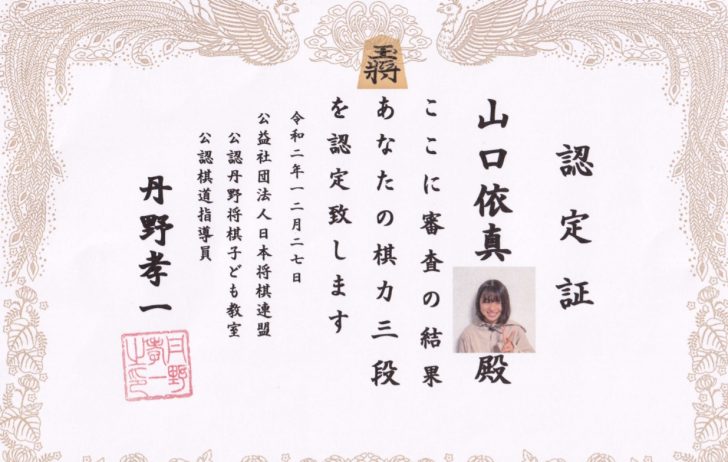 玉將
認定証
山口依真殿
ここに審査の結果
あなたの棋力三段
を認定致します
令和二年一二月二七日
公益社団法人日本将棋連盟
公認丹野将棋子ども教室
公認棋道指導員
丹野孝一
丹野
孝一
之印